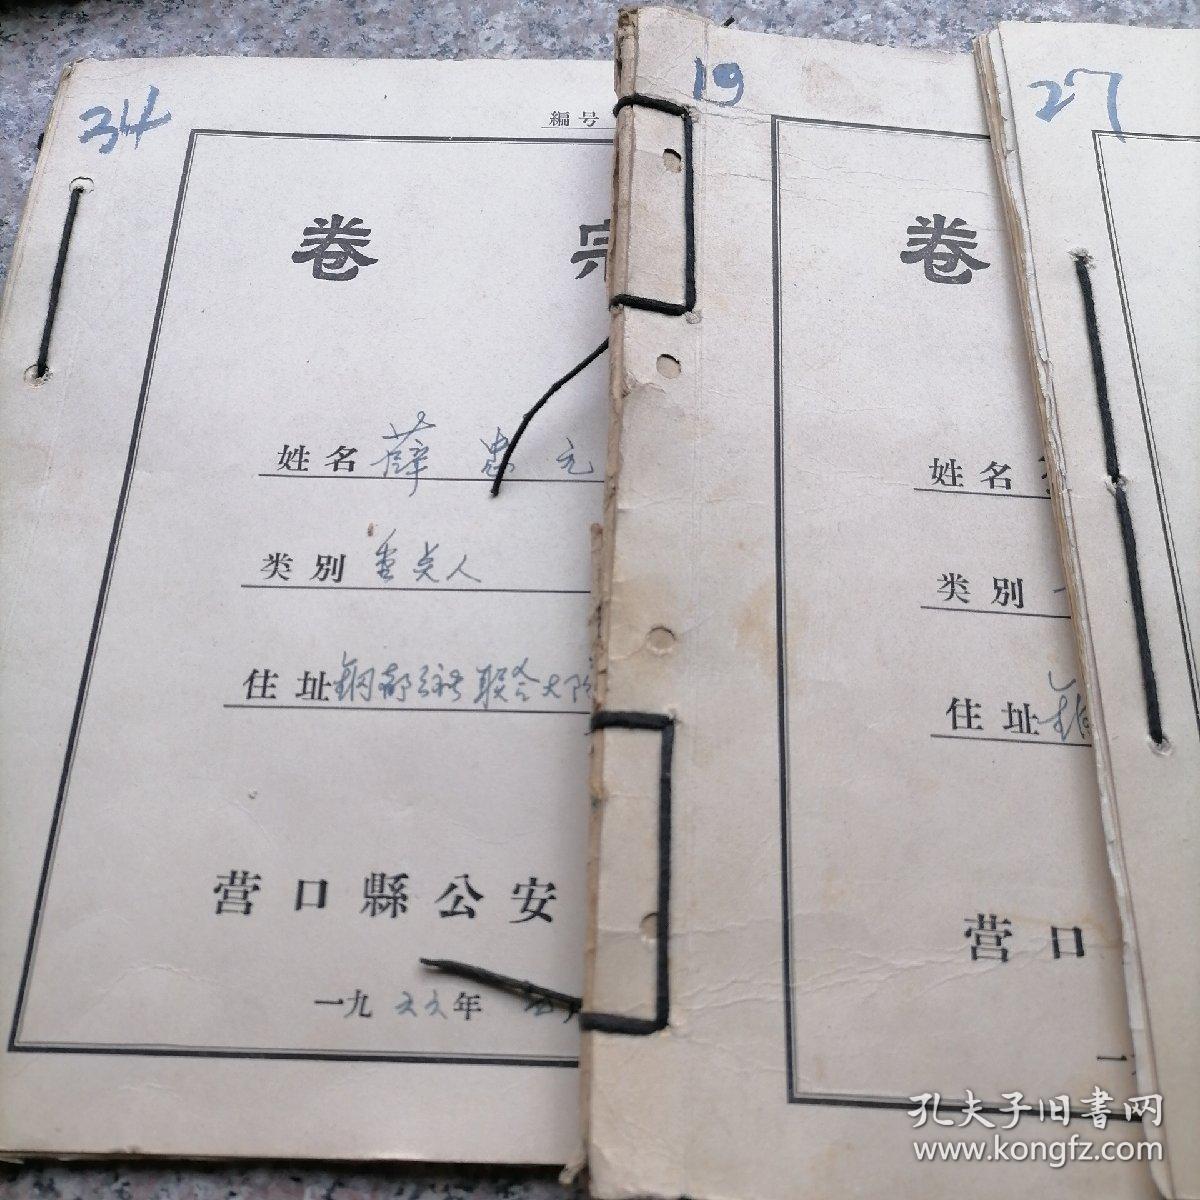 34
編号
卷 宗
姓名 薛忠元
类別 重点人
住址 钢都公社联合大队
营口縣公安
一九六六年
19
卷
姓名
类別
住址
营口
一
27
孔夫子旧書网
www.kongfz.com